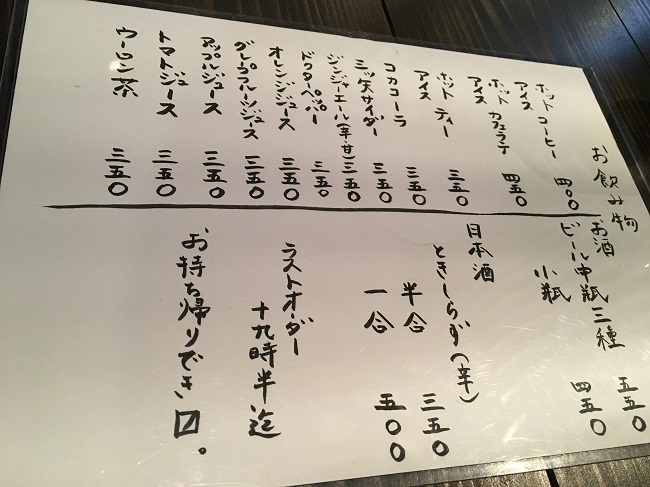 お飲み物
ホットコーヒー
アイス 四〇〇
ホットカフェラテ
アイス 四五〇
ホットティー
アイス 三五〇
コカコーラ 三五〇
三ツ矢サイダー 三五〇
ジンジャーエール(辛・甘) 三五〇
ドクターペッパー 三五〇
オレンジジュース 三五〇
グレープフルーツジュース 三五〇
アップルジュース 三五〇
トマトジュース 三五〇
ウーロン茶 三五〇
お酒
ビール中瓶三種 五五〇
小瓶 四五〇
日本酒
ときしらず(辛)
半合 三五〇
一合 五〇〇
ラストオーダー
十九時半迄
お持ち帰りでき〼。